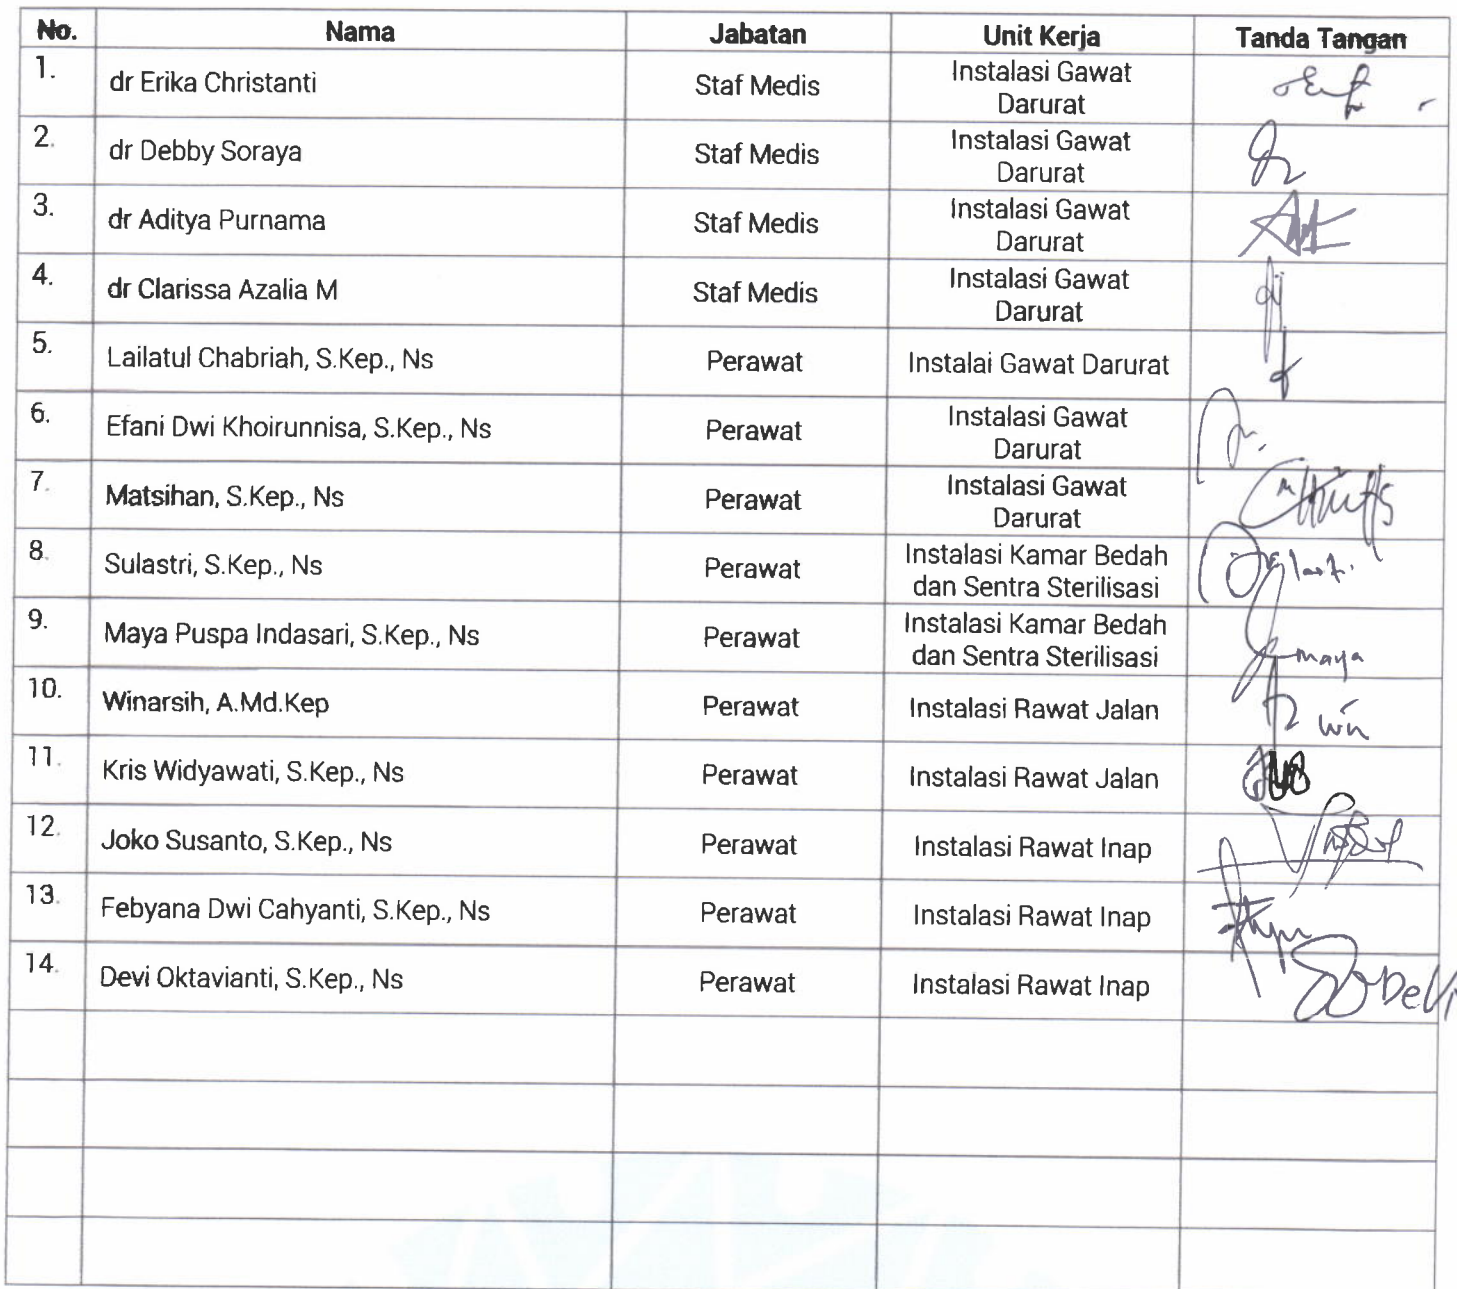 No. Nama Jabatan Unit Kerja Tanda Tangan
1. dr Erika Christanti Staf Medis Instalasi Gawat
Darurat
2. dr Debby Soraya Staf Medis Instalasi Gawat
Darurat
3. dr Aditya Purnama Staf Medis Instalasi Gawat
Darurat
4. dr Clarissa Azalia M Staf Medis Instalasi Gawat
Darurat
5. Lailatul Chabriah, S.Kep., Ns Perawat Instalai Gawat Darurat
6. Efani Dwi Khoirunnisa, S.Kep., Ns Perawat Instalasi Gawat
Darurat
7. Matsihan, S.Kep., Ns Perawat Instalasi Gawat
Darurat
8. Sulastri, S.Kep., Ns Perawat Instalasi Kamar Bedah
dan Sentra Sterilisasi
9. Maya Puspa Indasari, S.Kep., Ns Perawat Instalasi Kamar Bedah
dan Sentra Sterilisasi maya
10. Winarsih, A.Md.Kep Perawat Instalasi Rawat Jalan win
11. Kris Widyawati, S.Kep., Ns Perawat Instalasi Rawat Jalan
12. Joko Susanto, S.Kep., Ns Perawat Instalasi Rawat Inap
13. Febyana Dwi Cahyanti, S.Kep., Ns Perawat Instalasi Rawat Inap
14. Devi Oktavianti, S.Kep., Ns Perawat Instalasi Rawat Inap Devi